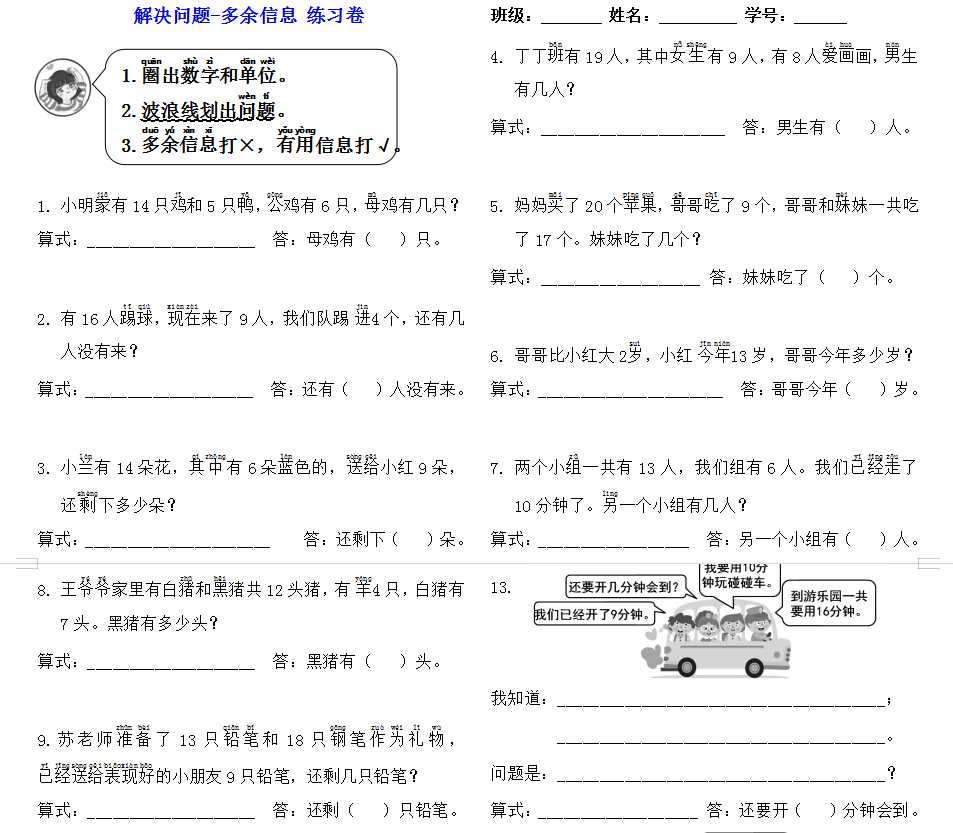 解决问题-多余信息 练习卷
班级：_______ 姓名：_________ 学号：______
quān shù zì dān wèi
1.圈出数字和单位。
wèn tí
2.波浪线划出问题。
duō yú xìn xī yǒu yòng
3.多余信息打×，有用信息打√。
1. 小明家有 14 只鸡和 5 只鸭，公鸡有 6 只，母鸡有几只？
算式：____________________ 答：母鸡有（ ）只。
2. 有 16 人踢球，现在来了 9 人，我们队踢进 4 个，还有几
人没有来？
算式：____________________ 答：还有（ ）人没有来。
3. 小兰有 14 朵花，其中有 6 朵蓝色的，送给小红 9 朵，
还剩下多少朵？
算式：______________________ 答：还剩下（ ）朵。
4. 丁丁班有 19 人，其中女生有 9 人，有 8 人爱画画，男生
有几人？
算式：______________________ 答：男生有（ ）人。
5. 妈妈买了 20 个苹果，哥哥吃了 9 个，哥哥和妹妹一共吃
了 17 个。妹妹吃了几个？
算式：___________________ 答：妹妹吃了（ ）个。
6. 哥哥比小红大 2 岁，小红今年 13 岁，哥哥今年多少岁？
算式：______________________ 答：哥哥今年（ ）岁。
7. 两个小组一共有 13 人，我们组有 6 人。我们已经走了
10 分钟了。另一个小组有几人？
算式：__________________ 答：另一个小组有（ ）人。
8. 王爷爷家里有白猪和黑猪共 12 头猪，有羊 4 只，白猪有
7 头。黑猪有多少头？
算式：____________________ 答：黑猪有（ ）头。
9. 苏老师准备了 13 只铅笔和 18 只钢笔作为礼物，
已经送给表现好的小朋友 9 只铅笔，还剩几只铅笔？
算式：____________________ 答：还剩（ ）只铅笔。
13.
还要开几分钟会到？
我们已经开了9分钟。
我要用10分
钟玩碰碰车。
到游乐园一共
要用16分钟。
我知道：_______________________________________；
_______________________________________。
问题是：_______________________________________？
算式：___________________ 答：还要开（ ）分钟会到。